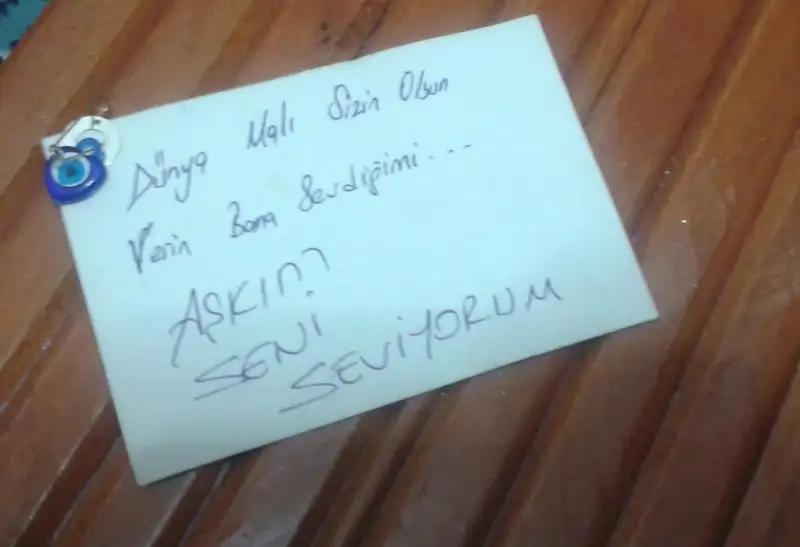 Dünya Malı Sizin Olsun
Verin Bana Sevdiğimi...
AŞKIM?
SENİ
SEVİYORUM